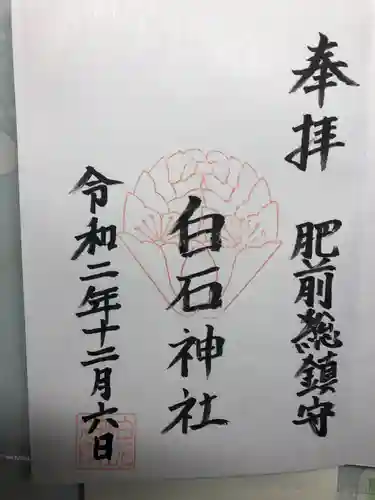 奉拝 肥前総鎮守
白石神社
令和二年十二月六日